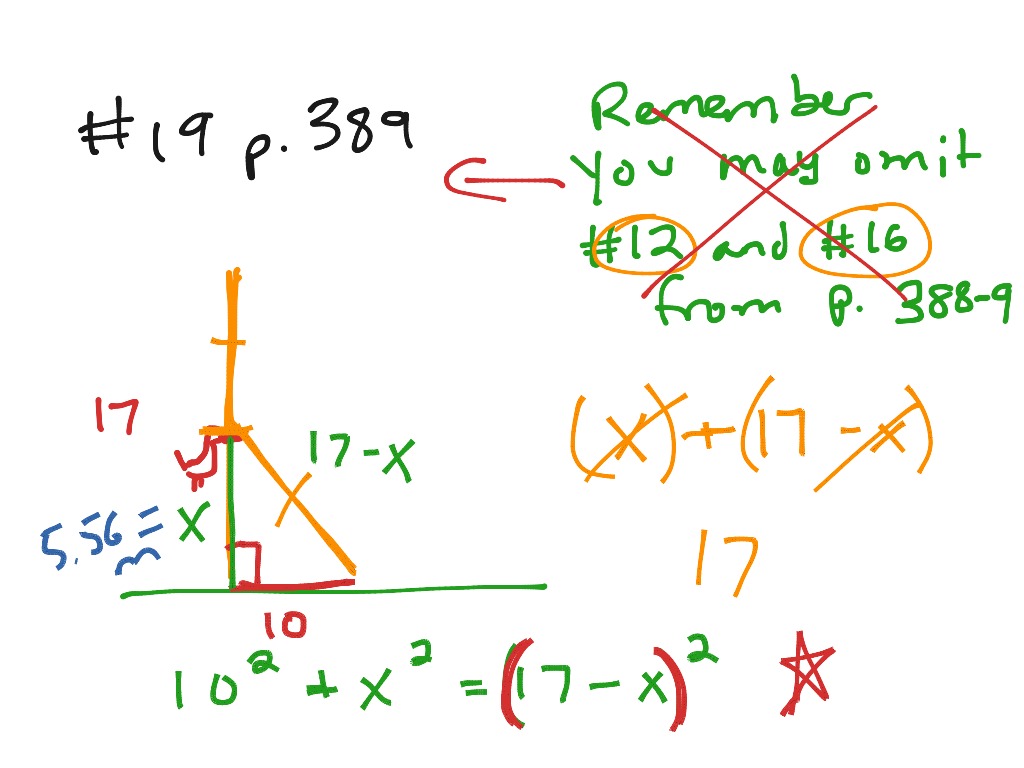 #19 p. 389
Remember
You may omit
#12 and #16
from p. 388-9
17
17 - x
(x) + (17 - x)
5.56 = x
17
10
10² + x² = (17 - x)²